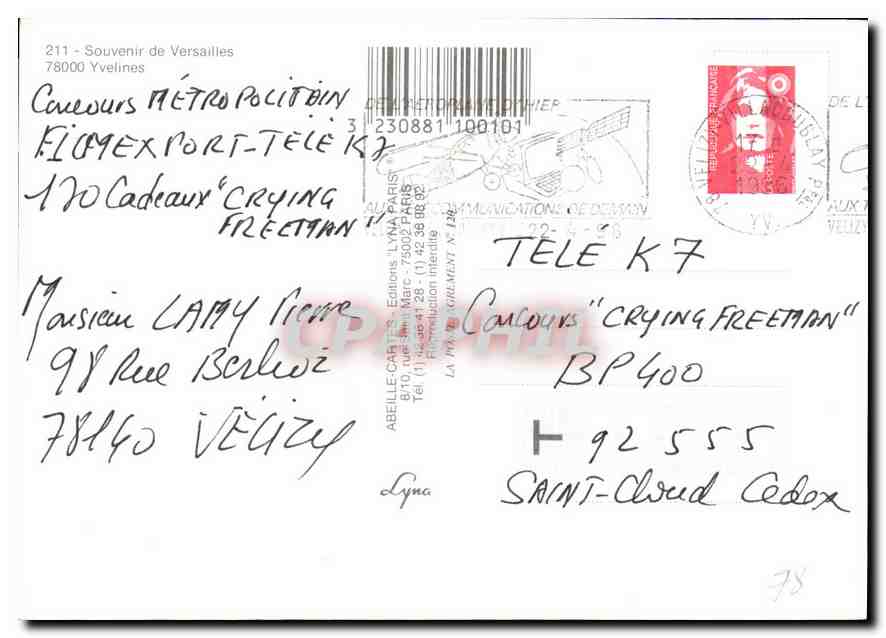 211 - Souvenir de Versailles
78000 Yvelines
Concours MÉTROPOLITAIN
FILMEXPORT-TÉLÉ K7
120 Cadeaux "CRYING
FREEMAN"
Monsieur LAMY Pierre
98 Rue Berlioz
78140 VÉLIZY
3 230881 100101
DE L'AEROPLANE D'HIER
COMMUNICATIONS DE DEMAIN
22-4-96
REPUBLIQUE FRANÇAISE
DE L'
VELIZY
ABEILLE-CARTES - Editions "LYNA-PARIS"
8/10, rue Saint Marc - 75002 PARIS
Tél. (1) 42 36 41 28 - (1) 42 36 98 92
Reproduction interdite
Lyna
TÉLÉ K7
Concours "CRYING FREEMAN"
BP 400
T 92 555
SAINT-Cloud Cedex
78